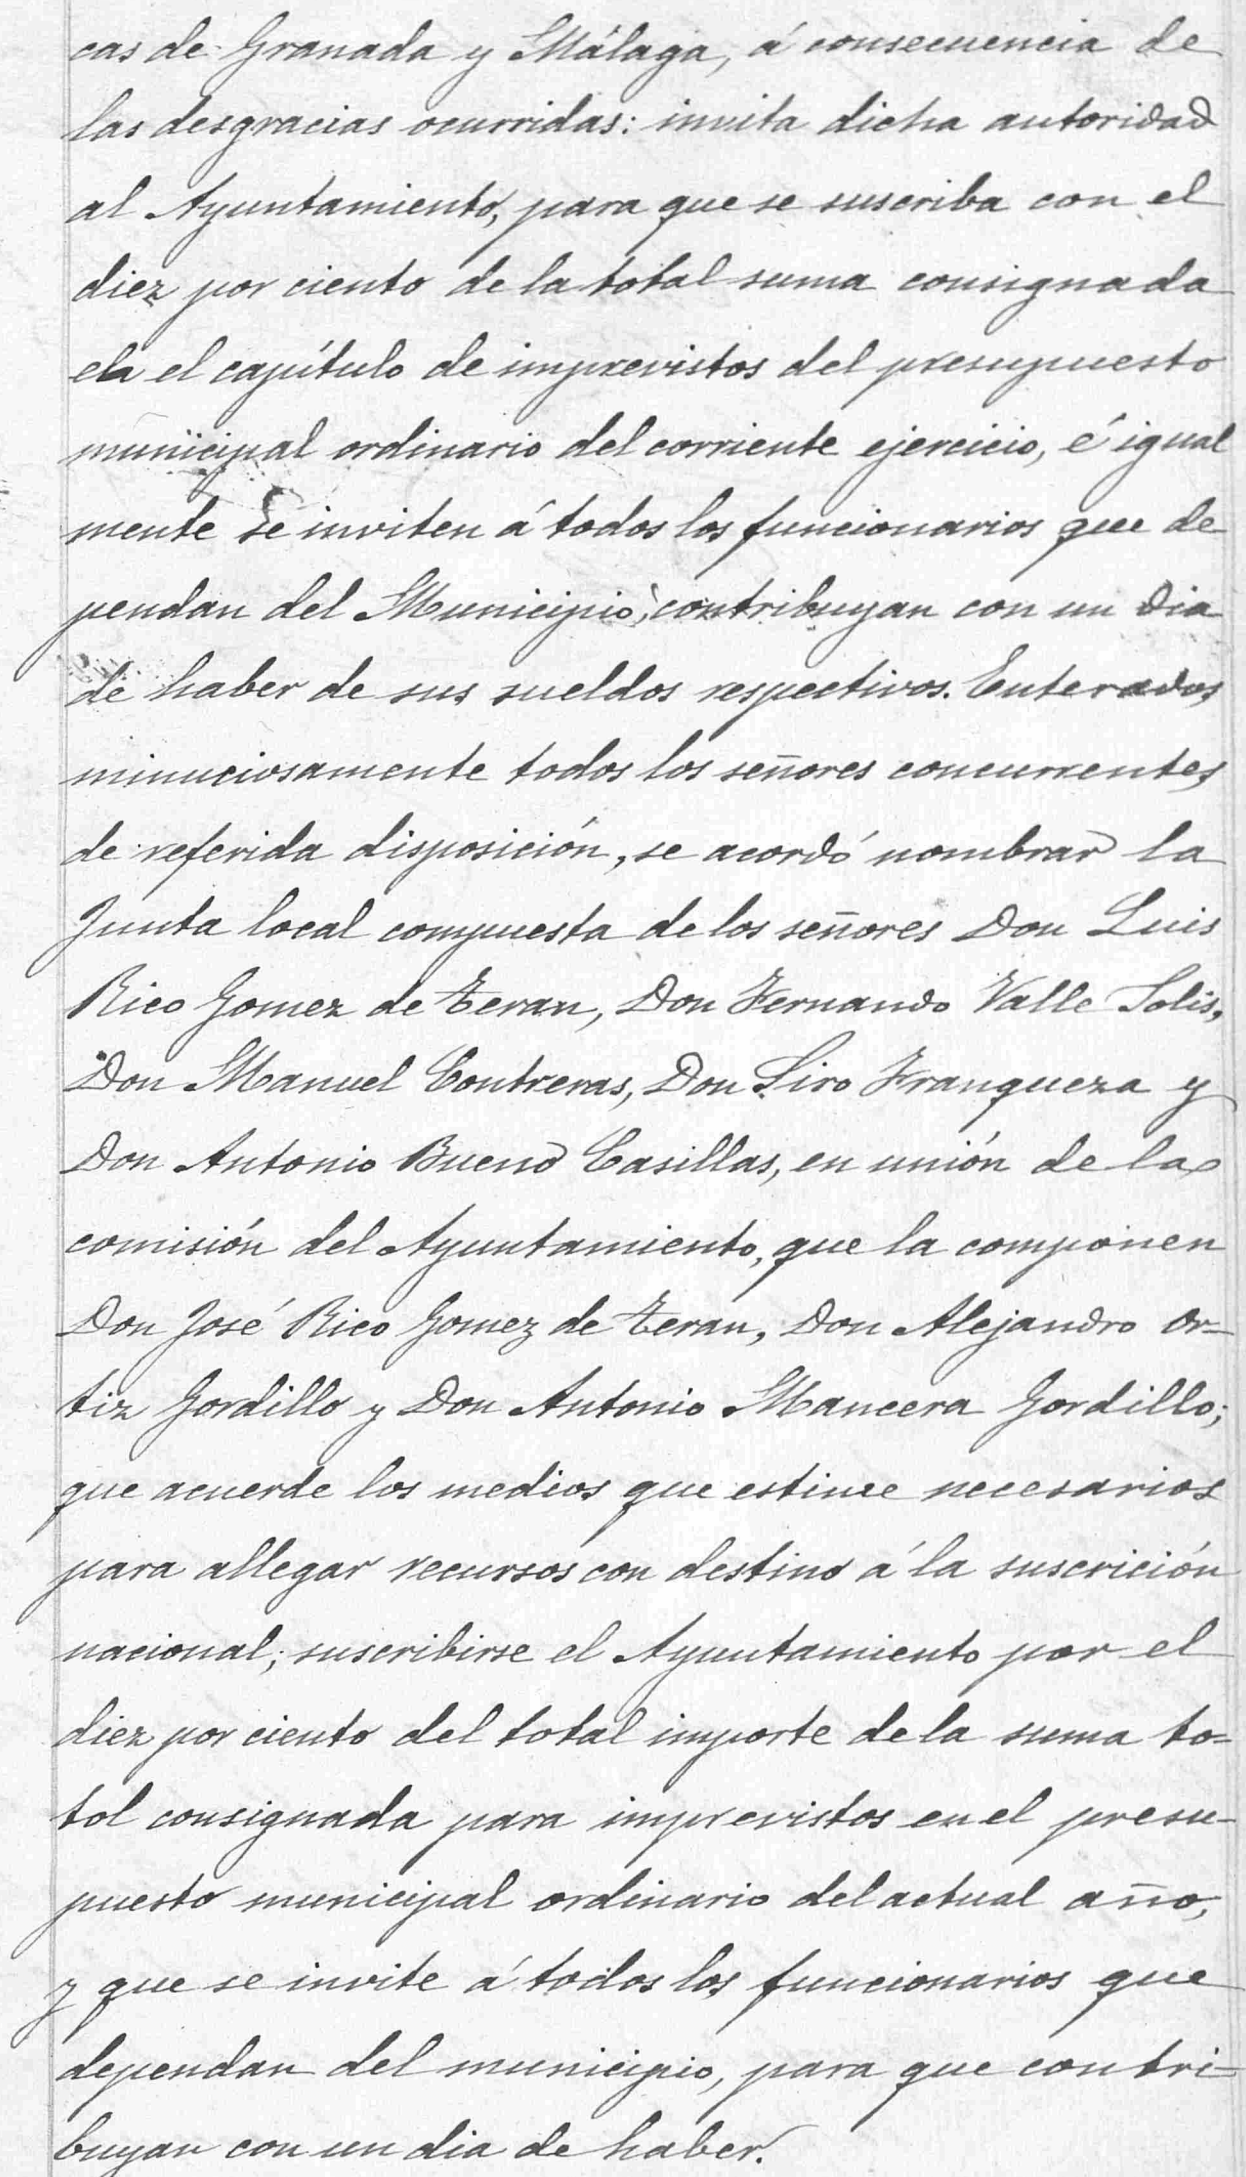 cas de Granada y Málaga, á consecuencia de
las desgracias ocurridas: invita dicha autoridad
al Ayuntamiento, para que se suscriba con el
diez por ciento de la total suma consignada
en el capítulo de imprevistos del presupuesto
municipal ordinario del corriente ejercicio, é igual
mente se inviten á todos los funcionarios que de
pendan del Municipio, contribuyan con un dia
de haber de sus sueldos respectivos. Enterados
minuciosamente todos los señores concurrentes
de referida disposición, se acordó nombrar la
Junta local compuesta de los señores Don Luis
Rico Gomez de Teran, Don Fernando Valle Solis,
Don Manuel Contreras, Don Siro Franqueza y
Don Antonio Bueno Casillas, en unión de la
comisión del Ayuntamiento, que la componen
Don José Rico Gomez de Teran, Don Alejandro Or=
tiz Gordillo y Don Antonio Mancera Gordillo;
que acuerde los medios que estime necesarios
para allegar recursos con destino á la suscrición
nacional; suscribirse el Ayuntamiento por el
diez por ciento del total importe de la suma to=
tol consignada para imprevistos en el presu-
puesto municipal ordinario del actual año,
y que se invite á todos los funcionarios que
dependan del municipio, para que contri-
buyan con un dia de haber.